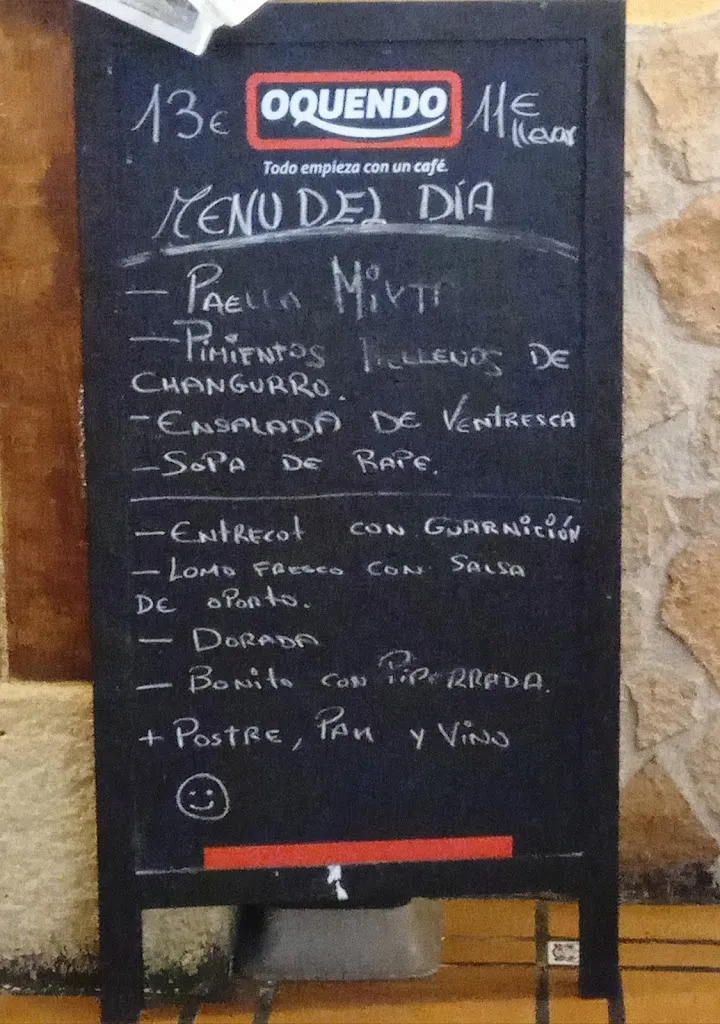 13€ OQUENDO 11€ llevar
Todo empieza con un café.
MENU DEL DÍA
— PAELLA MIXTA
— PIMIENTOS RELLENOS DE
CHANGURRO.
- ENSALADA DE VENTRESCA
- SOPA DE RAPE.
— ENTRECOT CON GUARNICIÓN
— LOMO FRESCO CON SALSA
DE OPORTO.
— DORADA
— BONITO CON PIPERRADA.
+ POSTRE, PAN Y VINO